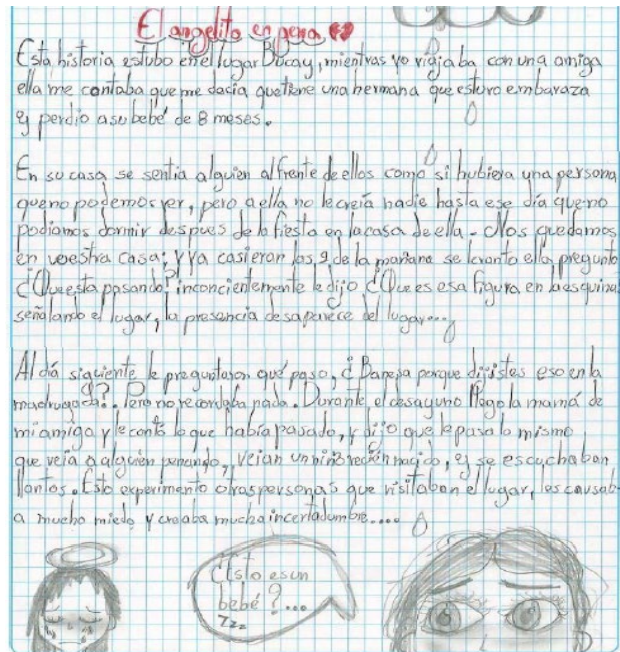 El angelito en pena
Esta historia estubo en el lugar Bucay, mientras yo viajaba con una amiga
ella me contaba que me dacia que tiene una hermana que estuvo embaraza
y perdio a su bebé de 8 meses.
En su casa se sentia alguien al frente de ellos como si hubiera una persona
que no podemos ver, pero a ella no le creía nadie hasta ese día que no
podiamos dormir despues de la fiesta en la casa de ella - Nos quedamos
en vuestra casa; y ya casi eran las 2 de la mañana se levanto ella pregunto
¿Que esta pasando? inconcientemente le dijo ¿Que es esa figura en la esquina?
señalando el lugar, la presencia desaparece del lugar....
Al día siguiente le preguntaron qué paso, ¿ porque dijistes eso en la
madrugada?. Pero no recordaba nada. Durante el desayuno llego la mamá de
mi amiga y le conto lo que había pasado, y dijo que le pasa lo mismo
que veía a alguien penando, veían un niño recién nacido, y se escuchaban
llantos. Esto experimento otras personas que visitaban el lugar, les causab-
a mucho miedo y creaba mucha incertadumbre....
¿Esto es un
bebé?...
Zzz